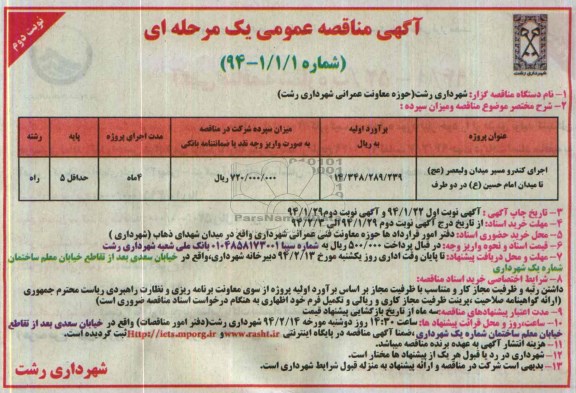 نوبت دوم
آگهی مناقصه عمومی یک مرحله ای
(شماره ۹۴-۱/۱/۱)
شهرداری رشت
۱- نام دستگاه مناقصه گزار: شهرداری رشت(حوزه معاونت عمرانی شهرداری رشت)
۲- شرح مختصر موضوع مناقصه ومیزان سپرده :
عنوان پروژه
برآورد اولیه به ریال
میزان سپرده شرکت در مناقصه به صورت واریز وجه نقد یا ضمانتنامه بانکی
مدت اجرای پروژه
پایه
رشته
اجرای کندرو مسیر میدان ولیعصر (عج) تا میدان امام حسین (ع) در دو طرف
۱۴/۳۴۸/۲۸۹/۲۳۹
۷۲۰/۰۰۰/۰۰۰ ریال
۴ماه
حداقل ۵
راه
۳- تاریخ چاپ آگهی : آگهی نوبت اول ۹۴/۱/۲۲ و آگهی نوبت دوم۹۴/۱/۲۹
۴- مهلت خرید اسناد: از تاریخ درج آگهی نوبت دوم ۹۴/۱/۲۹الی ۹۴/۲/۳
۵- محل خرید حضوری اسناد: دفتر امور قرارداد ها حوزه معاونت فنی عمرانی شهرداری واقع در میدان شهدای ذهاب (شهرداری )
۶- قیمت اسناد و نحوه واریز وجه: در قبال پرداخت ۵۰۰/۰۰۰ ریال به شماره سیبا ۰۱۰۴۸۵۸۱۷۳۰۰۱ بانک ملی شعبه شهرداری رشت
۷- مهلت و محل دریافت پیشنهاد: تا پایان وقت اداری روز یکشنبه مورخ ۹۴/۲/۱۳ دبیرخانه شهرداری،واقع در خیابان سعدی بعد از تقاطع خیابان معلم ساختمان
شماره یک شهرداری
۸- شرایط اختصاصی خرید اسناد مناقصه:
داشتن رتبه و ظرفیت مجاز کار و متناسب با ظرفیت مجاز بر اساس برآورد اولیه پروژه از سوی معاونت برنامه ریزی و نظارت راهبردی ریاست محترم جمهوری
(ارائه گواهینامه صلاحیت ،پرینت ظرفیت مجاز کاری و ریالی و تکمیل فرم خود اظهاری به هنگام درخواست اسناد مناقصه ضروری است)
۹- مدت اعتبار پیشنهادهای مناقصه:سه ماه از تاریخ بازگشایی پیشنهاد قیمت
۱۰- ساعت،روز و محل قرائت پیشنهاد ها: ساعت ۱۴:۳۰ روز دوشنبه مورخه ۹۴/۲/۱۴ شهرداری رشت(دفتر امور مناقصات) واقع در خیابان سعدی بعد از تقاطع
خیابان معلم ساختمان شماره یک شهرداری ،ضمنا آگهی مناقصه در پایگاه اینترنتی www.rasht.ir و Http//iets.mporg.ir ثبت گردیده است.
۱۱- هزینه انتشار آگهی به عهده برنده مناقصه میباشد.
۱۲- شهرداری در رد یا قبول هر یک از پیشنهاد ها مختار است.
۱۳- بدیهی است شرکت در مناقصه و ارائه پیشنهاد به منزله قبول شرایط شهرداری است.
شهرداری رشت